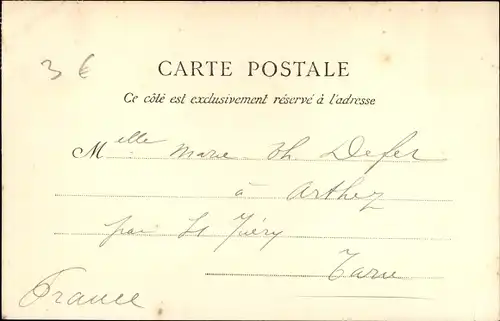 3 €
CARTE POSTALE
Ce côté est exclusivement réservé à l'adresse
Melle Marie Th. Defer
à Arthez
par St Juéry
Tarn
France